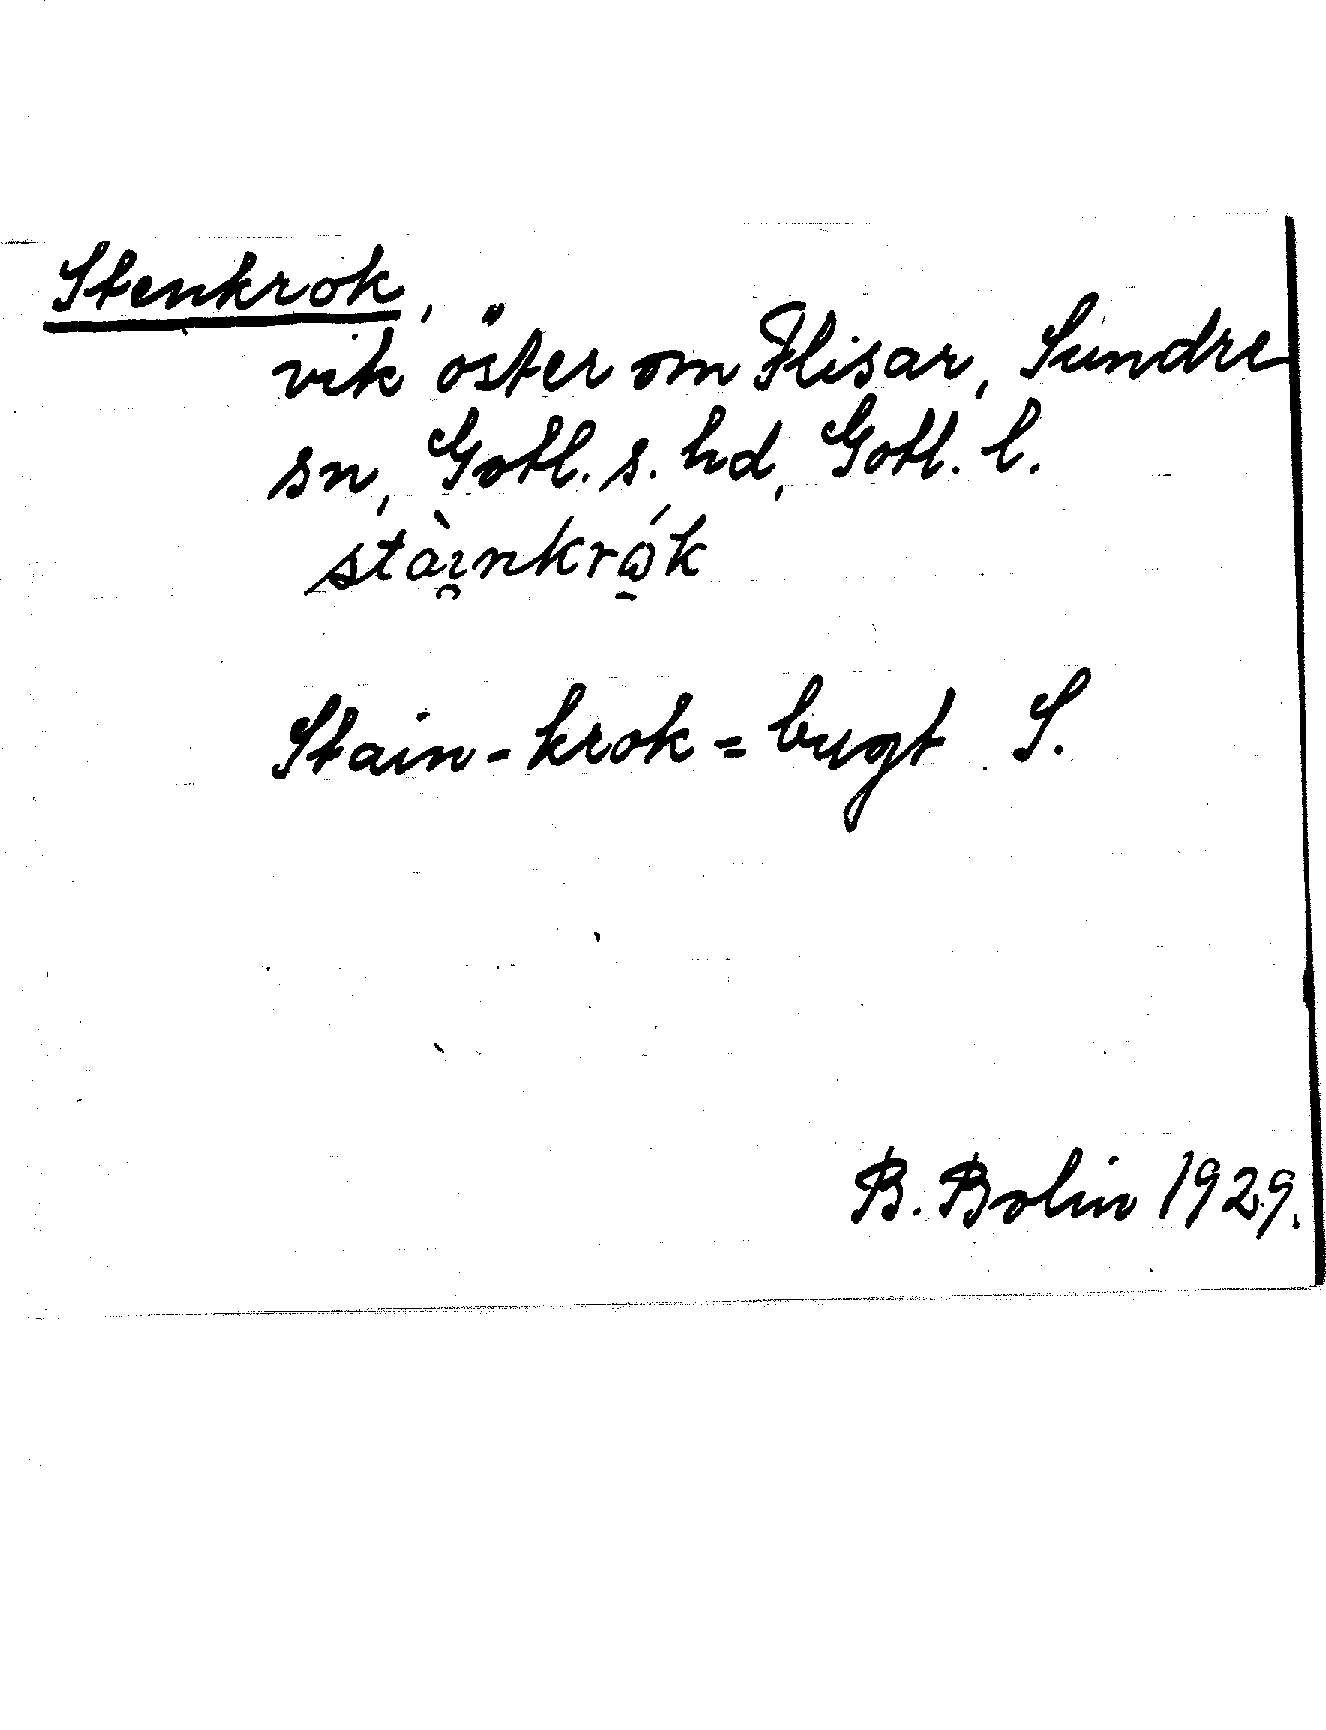 Stenkrok,
vik öster om Flisar, Sundre
sn, Gotl. s. hd, Gotl. l.
stàı̯nkrǫ́k
Stain-krok = bugt S.
B. Bolin 1929.